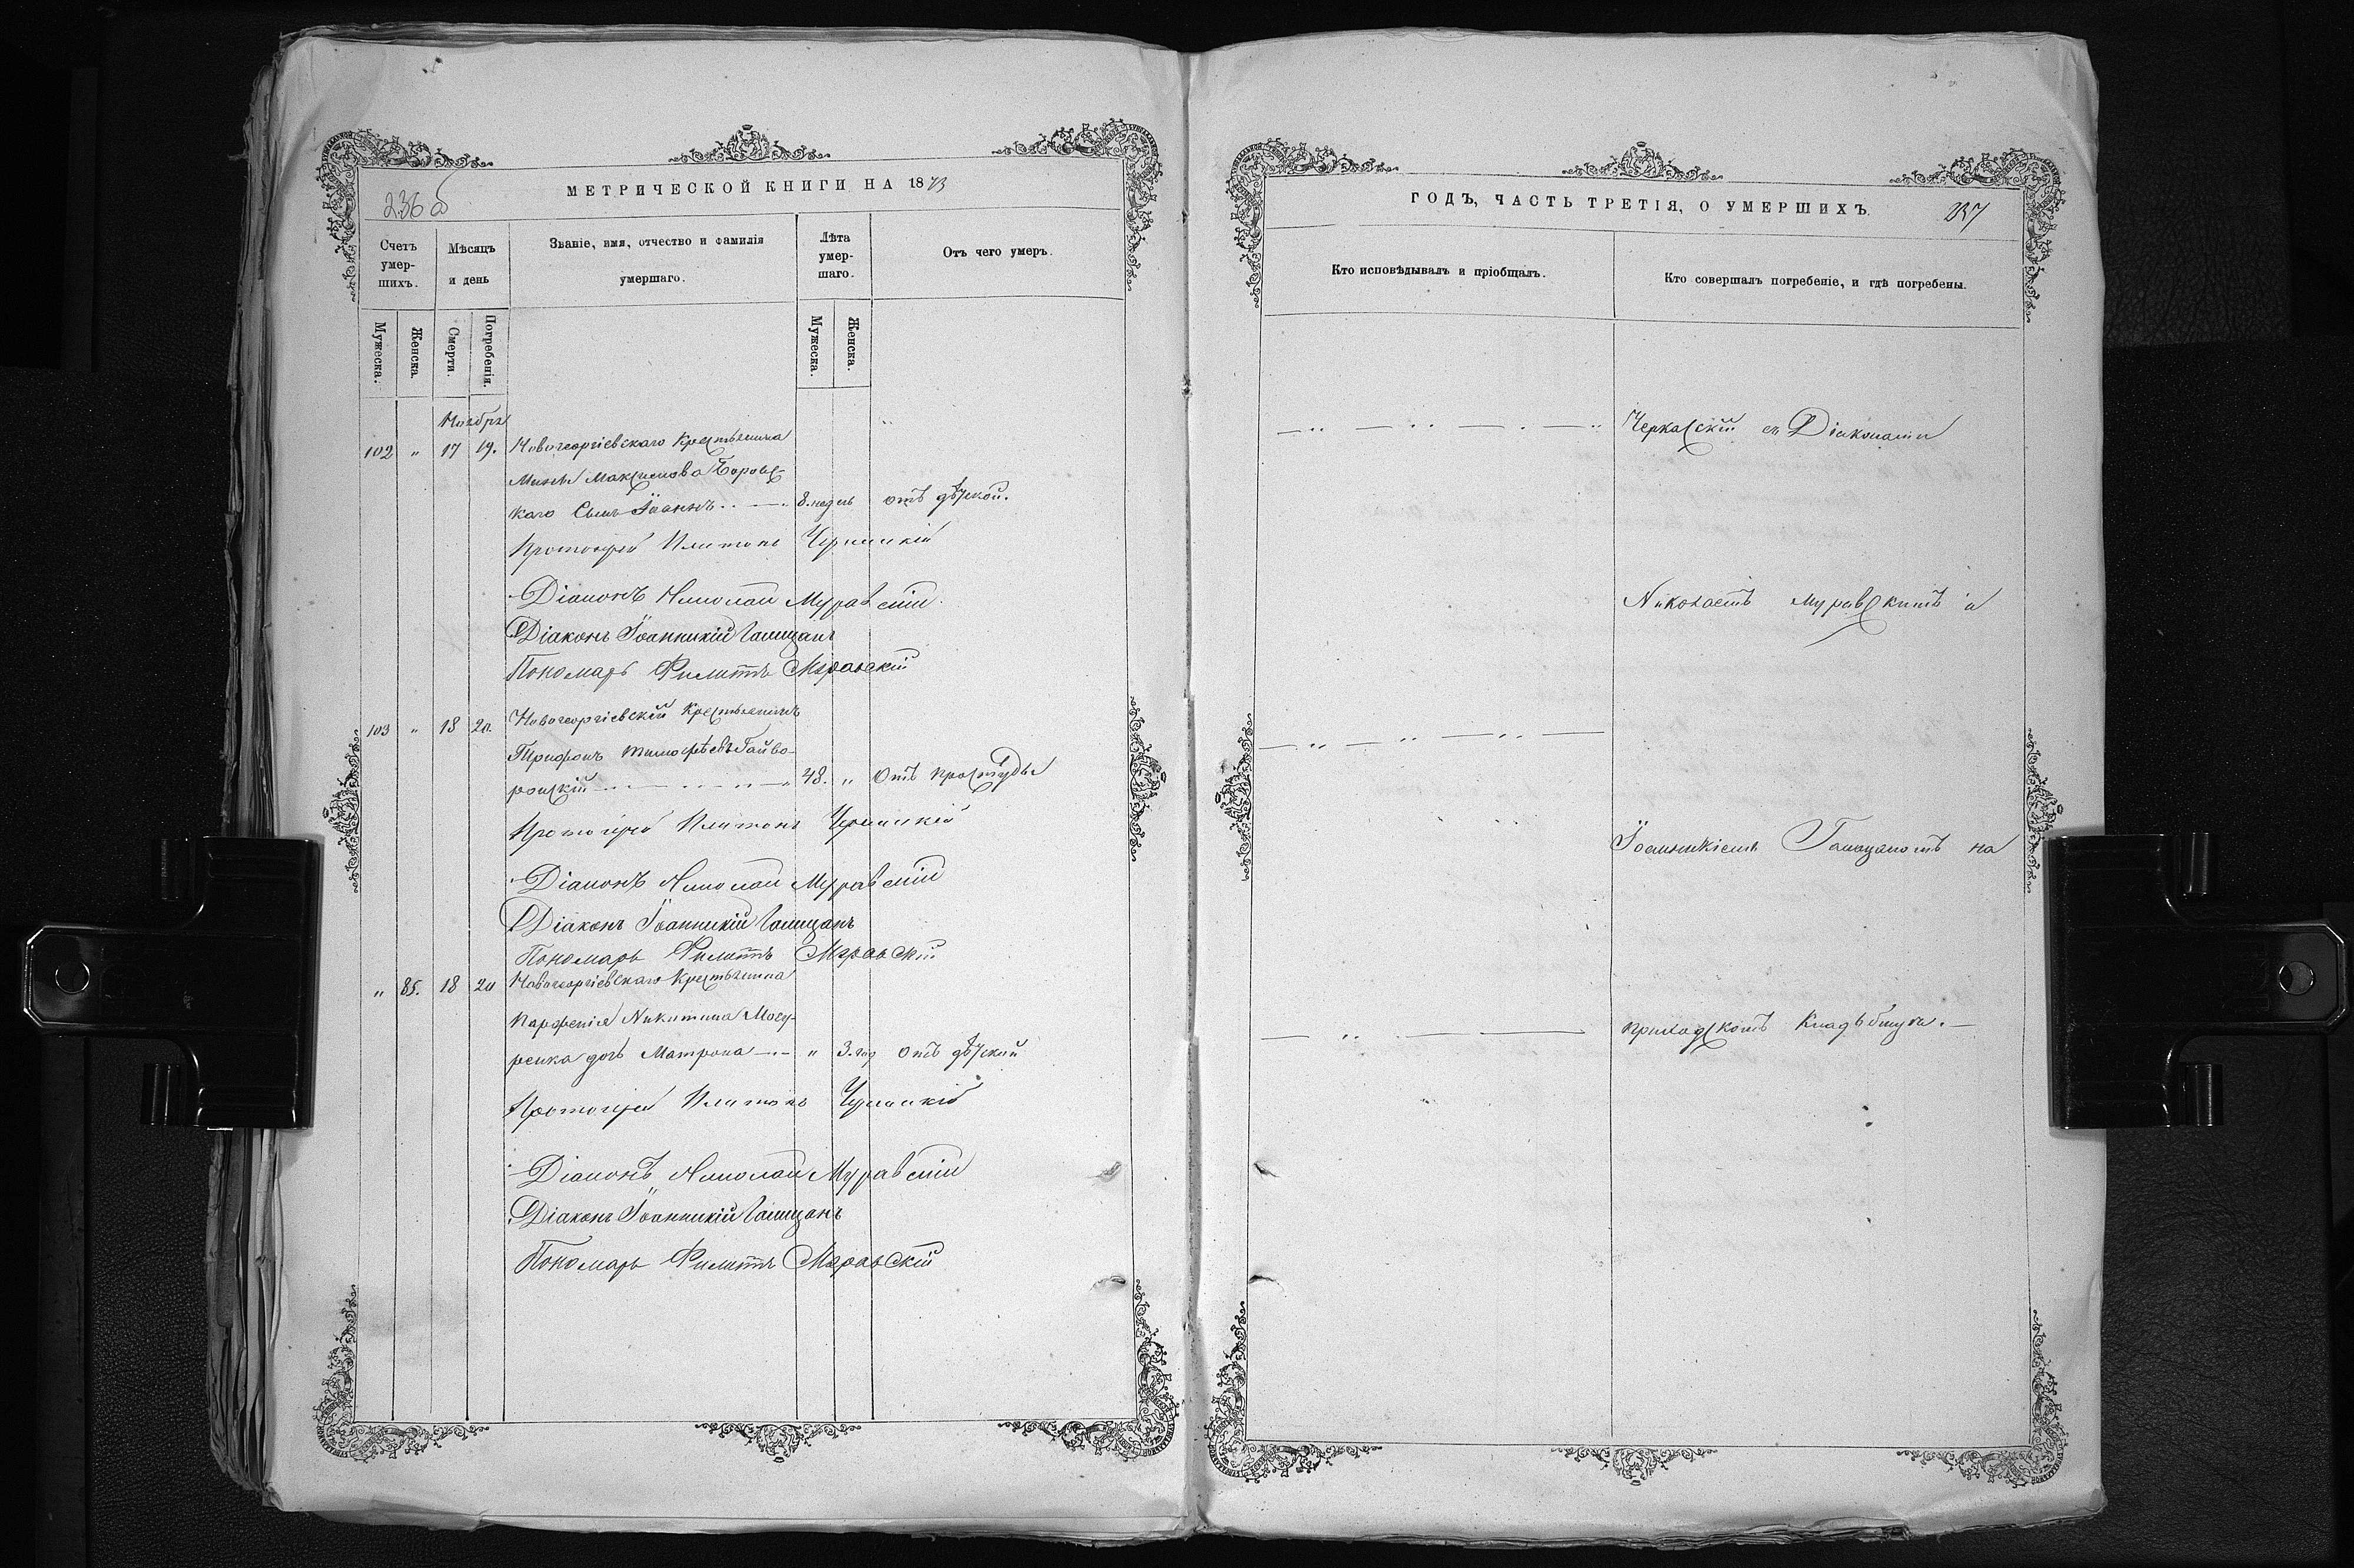 236 об
МЕТРИЧЕСКОЙ КНИГИ НА 1873
Счетъ умер-шихъ.
Мѣсяцъ и день
Званіе, имя, отчество и фамилія умершаго.
Лѣта умер-шаго.
Отъ чего умеръ.
Мужеска.
Женска.
Смерти.
Погребенія.
Мужеска.
Женска.
Ноября
102 " 17 19. Новогеоргіевскаго Крестьянина
Максимова
каго Сынъ Іоаннъ 8. недель отъ дѣтской.
Протоіерей Платонъ Черкаскій
Діаконъ Николай Муравскій
Діаконъ Іоанникій Галицанъ
Пономарь Филиппъ Муравскій
103 " 18 20. Новогеоргіевскій Крестьянинъ
Трифонъ Тимофѣевъ Гайво-
ронскій 48. " Отъ простуды
Протоіерей Платонъ Черкаскій
Діаконъ Николай Муравскій
Діаконъ Іоанникій Галицанъ
Пономарь Филиппъ Муравскій
" 85. 18 20 Новогеоргіевскаго Крестьянина
Парфенія Никитина Мосу-
ренка дочь Матрона " 3. год Отъ дѣтской
Протоіерей Платонъ Черкаскій
Діаконъ Николай Муравскій
Діаконъ Іоанникій Галицанъ
Пономарь Филиппъ Муравскій
ГОДЪ, ЧАСТЬ ТРЕТІЯ, О УМЕРШИХЪ.
237
Кто исповѣдывалъ и пріобщалъ.
Кто совершалъ погребеніе, и гдѣ погребены.
Черкаскій съ Діаконами
Николаемъ Муравскимъ и
Іоанникіемъ Галицаномъ на
приходскомъ Кладъбищѣ.